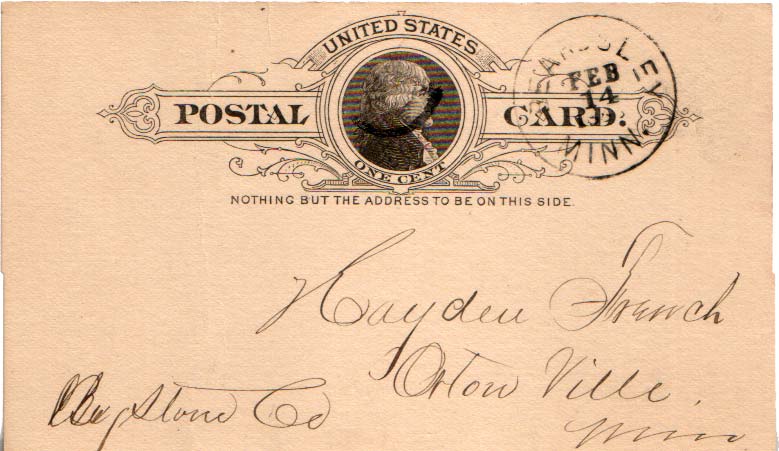 UNITED STATES
POSTAL CARD.
ONE CENT
NOTHING BUT THE ADDRESS TO BE ON THIS SIDE.
BEARDSLEY
FEB
14
MINN.
Hayden French
Orton Ville,
Big Stone Co
Minn